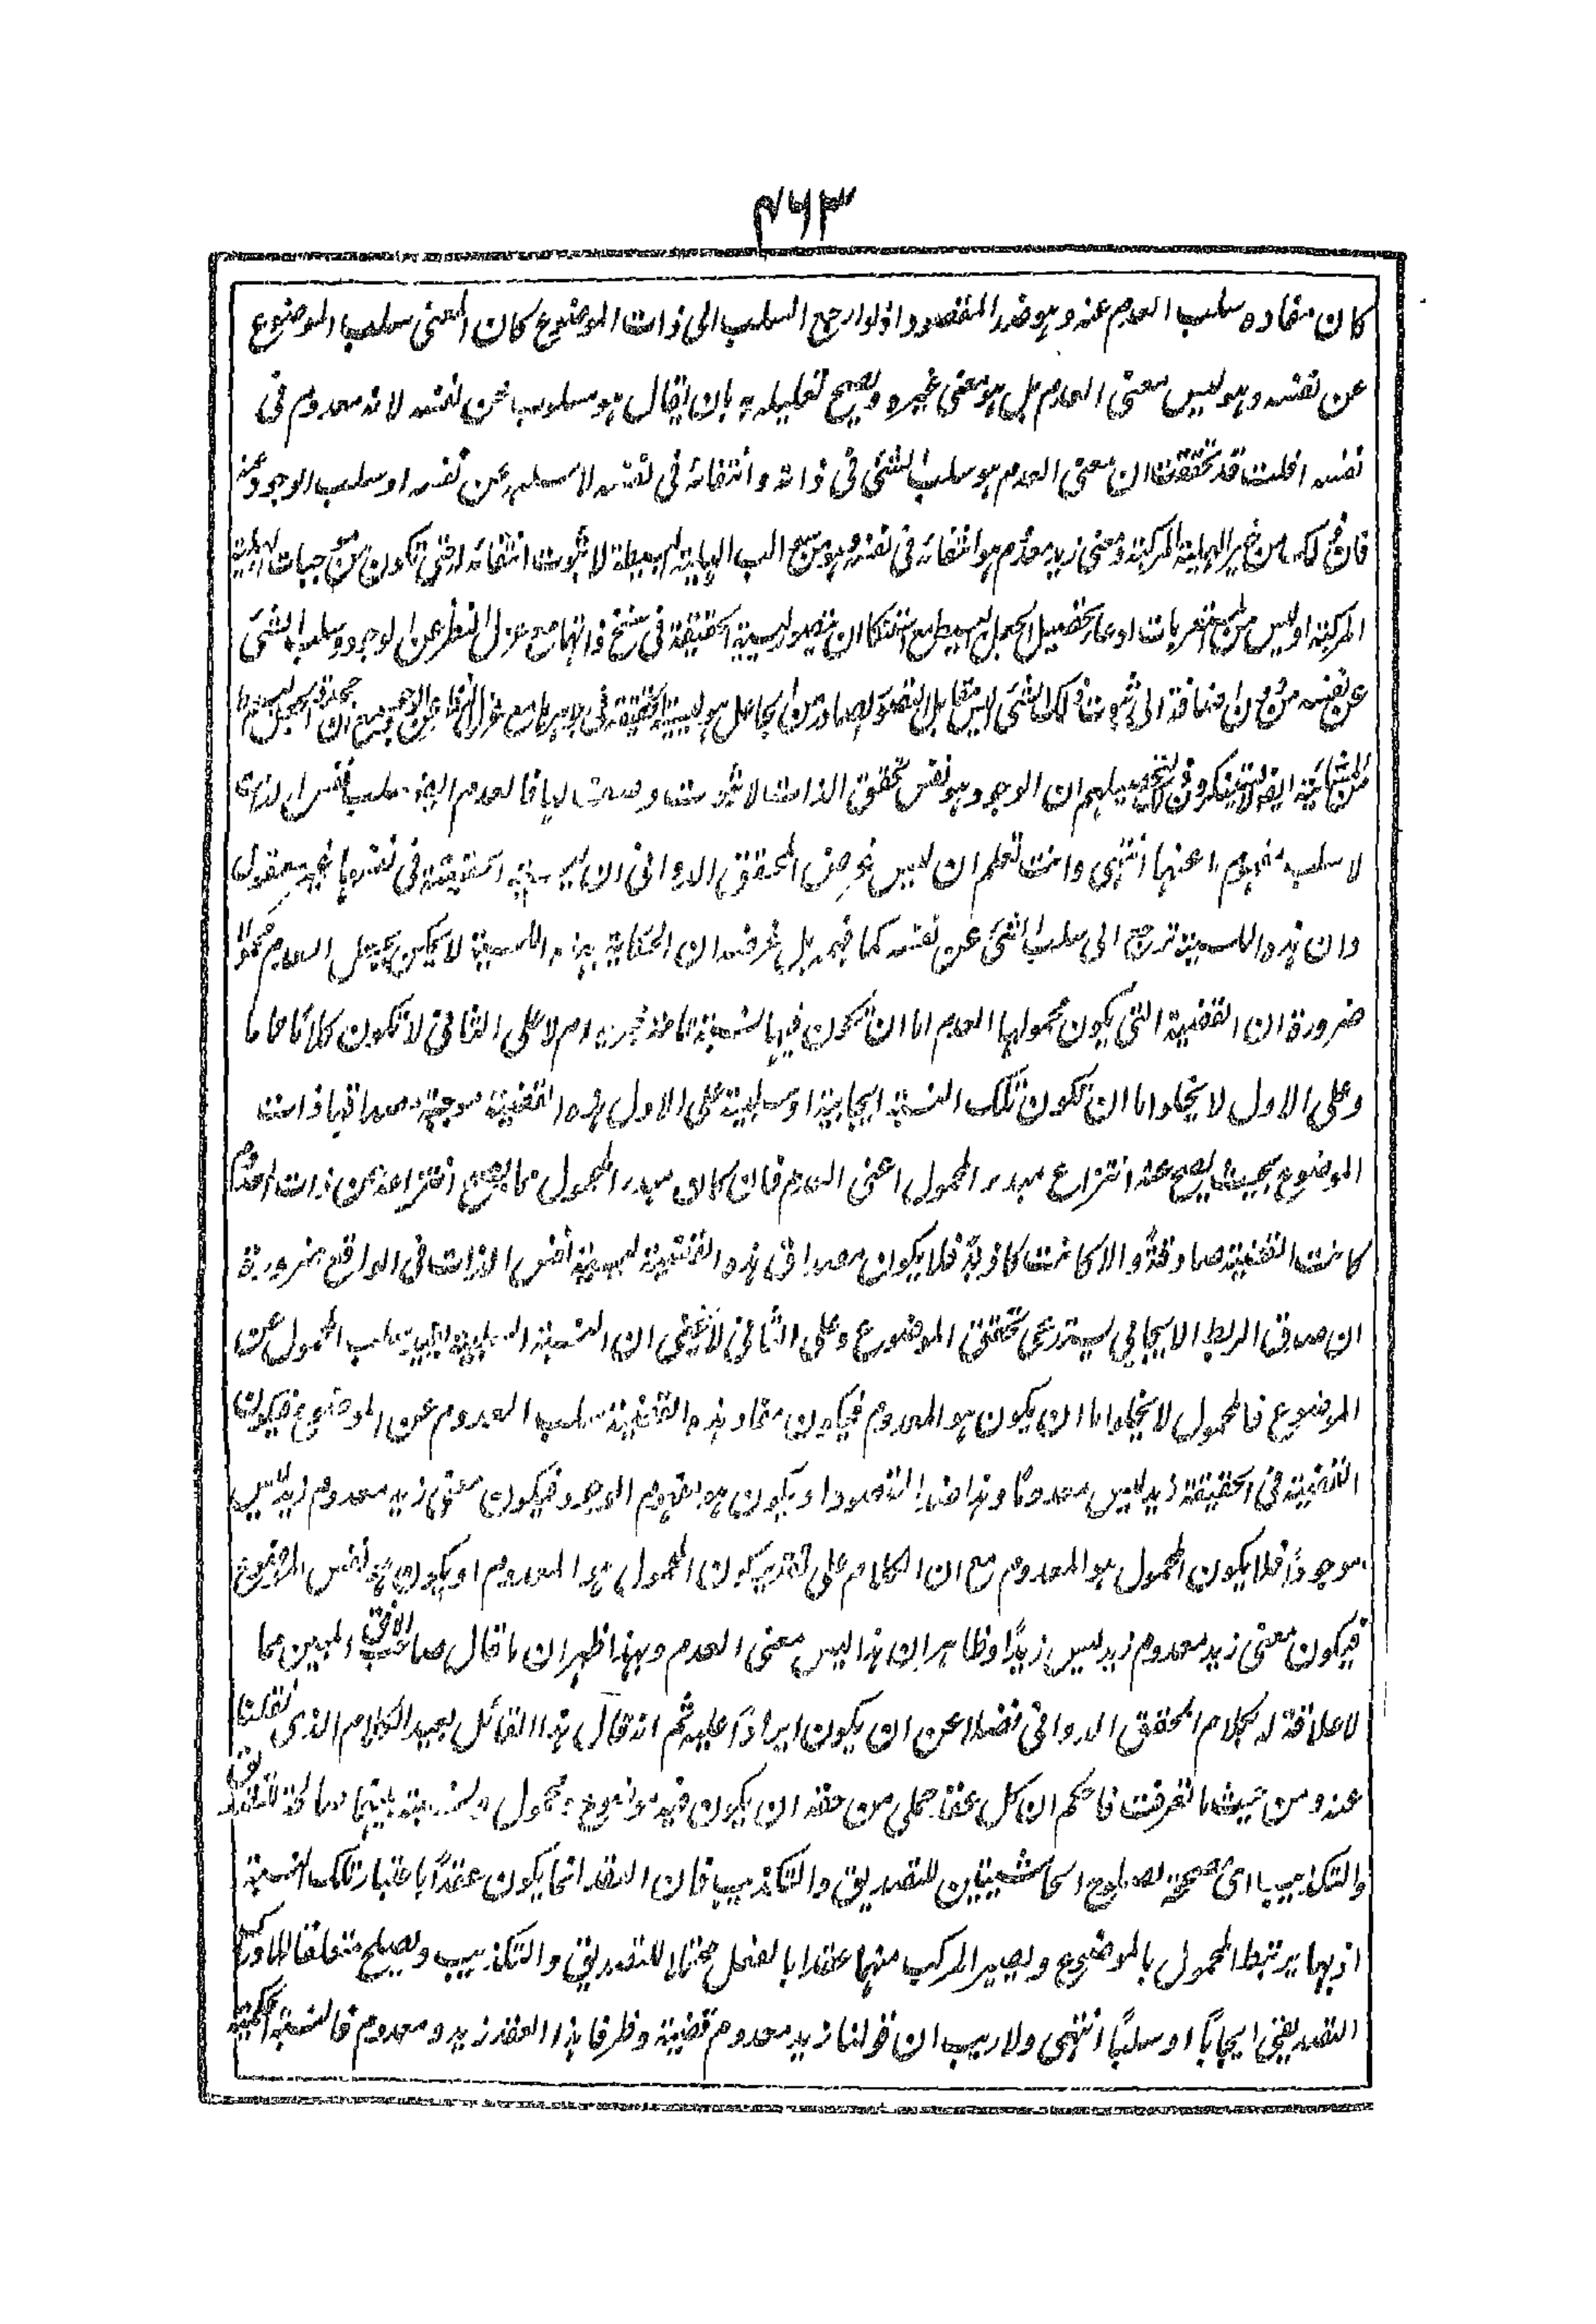 ٤٦٣
كان مفاده سلب العدم عنه وهو ضد المقصود اذ لو ارجع السلب الى ذات الموضوع كان المعنى سلب الموضوع
عن نفسه وهو ليس معنى العدم بل هو معنى غيره ويصح تعليله به بان يقال هو مسلوب عن نفسه لانه معدوم فى
نفسه اقلت قد تحققت ان معنى العدم هو سلب الشئ فى ذاته وانتفائه فى نفسه لا سلبه عن نفسه او سلب الوجود عنه
فان ذلك من خير الهلية المركبة ومعنى زيد معدوم هو انتفائه فى نفسه وهو من سلب الهلية البسيطة لا ثبوت انتفائه له حتى تكون من موجبات الهلية
المركبة اوليس من الجعل البسيط ان يتصور ليسية الحقيقة فى سنخ ذاتها مع عزل النظر عن الوجود وسلب الشئ
عن نفسه من اضافة الى ثبوت ذلك الشئ اليس مقابل الصادر من الجاعل هو ليسية الحقيقة فى مع عزل النظر عن
المشائية ايضا لا يستنكرون ان الوجود هو نفس تحقق الذات لا ثبوت وصف لها فالعدم ايضا سلب نفس الذات
لا سلب مفهوم ما عنها انتهى وانت تعلم ان ليس غرض المحقق الدوانى ان ليسية الحقيقة فى نفسها غير معقول
وان هذه الليسية ترجع الى سلب الشئ عن نفسه كما فهمه بل غرضه ان الحكاية بهذه الليسية لا يمكن بجعل العدم محمولا
ضرورة ان القضية التى يكون محمولها العدم اما ان تكون فيها نسبة تامة خبرية ام لا على الثانى لا تكون كلاما تاما
وعلى الاول لا يخلو اما ان تكون تلك النسبة ايجابية او سلبية على الاول هذه القضية موجبة ومصداقها ذات
الموضوع بحيث يصح عنه انتزاع مبدء المحمول اعنى العدم فان كان مبدء المحمول مما يصح انتزاعه عن ذات المعدوم
كانت القضية صادقة والا كانت كاذبة فلا يكون مصداق هذه القضية ليسية نفس الذات فى الواقع ضرورة
ان صدق الربط الايجابى يستدعى تحقق الموضوع وعلى الثانى لا يخفى ان النسبة السلبية هى سلب المحمول عن
الموضوع فالمحمول لا يخلو اما ان يكون هو المعدوم فيكون مفاد هذه القضية سلب المعدوم عن الموضوع فيكون
القضية فى الحقيقة زيد ليس معدوما وهذا ضد المقصود او يكون هو مفهوم الموجود فيكون معنى زيد معدوم زيد ليس
موجودا فلا يكون المحمول هو المعدوم مع ان الكلام على تقدير كون المحمول هو المعدوم او يكون هو نفس الموضوع
فيكون معنى زيد معدوم زيد ليس زيدا وظاهر ان هذا ليس معنى العدم وبهذا ظهر ان ما قال صاحب الافق المبين مما
لا علاقة له بكلام المحقق الدوانى فضلا عن ان يكون ايرادا عليه ثم انه قال هذا القائل بعيد الكلام الذى نقلنا
عنه ومن حيث ما تعرفت فاحكم ان كل عقد حملى من حقه ان يكون فيه موضوع ومحمول ونسبة بينهما صالحة للتصديق
والتكذيب اى صحة صلوح الحاشيتين للتصديق والتكذيب فان العقد انما يكون عقدا باعتبار تلك النسبة
اذ بها يرتبط المحمول بالموضوع ويصير المركب منهما عقدا بالفعل محتملا للتصديق والتكذيب ويصلح متعلقا للادراك
التصديقى ايجابا او سلبا انتهى ولا ريب ان قولنا زيد معدوم قضية وطرفا هذا العقد زيد ومعدوم فالنسبة الحكمية